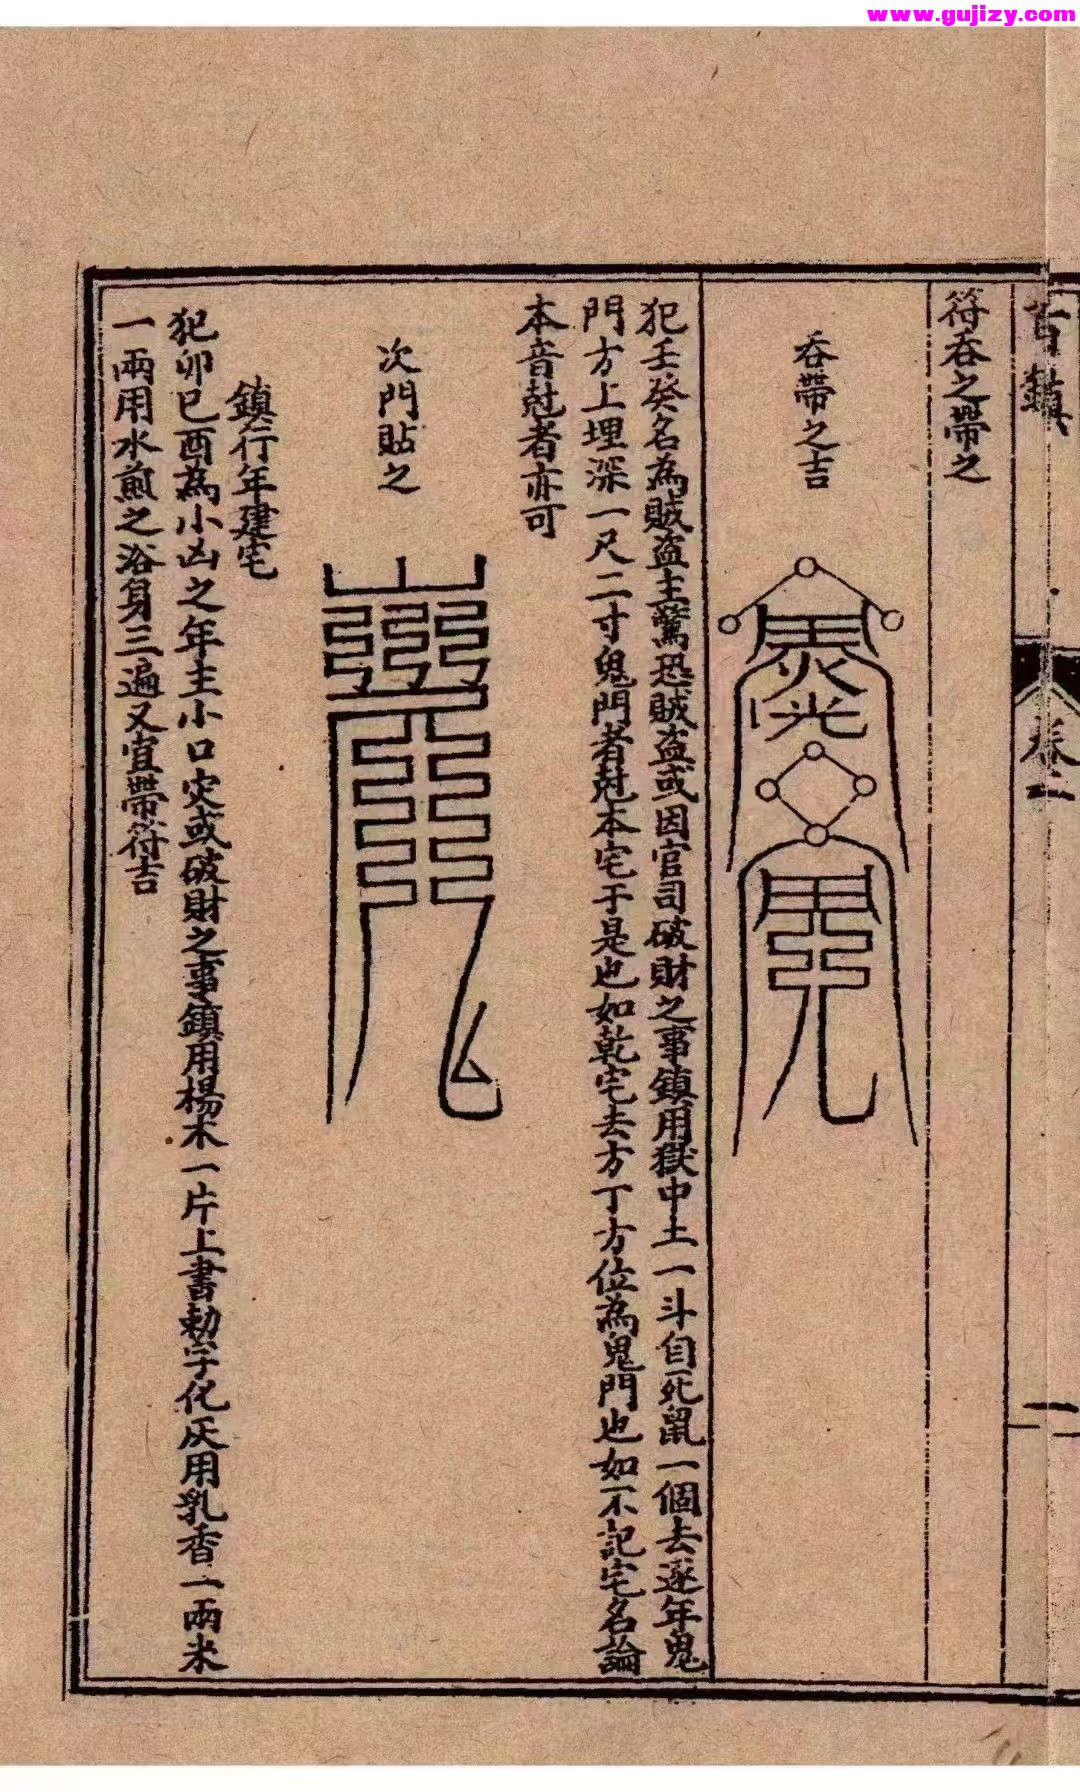 www.gujizy.com
鎮
卷二
符吞之帶之
吞帶之吉
犯壬癸名為賊盜主驚恐賊盗或因官司破財之事鎮用獄中土一斗自死鼠一個去逐年鬼
門方上埋深一尺二寸鬼門者尅本宅于是也如乾宅去方丁方位為鬼門也如不記宅名論
本音尅者亦可
次門貼之
鎮行年建宅
犯卯巳酉為小凶之年主小口灾或破財之事鎮用楊木一片上書勅字化灰用乳香一兩米
一兩用水煎之浴身三遍又宜帶符吉